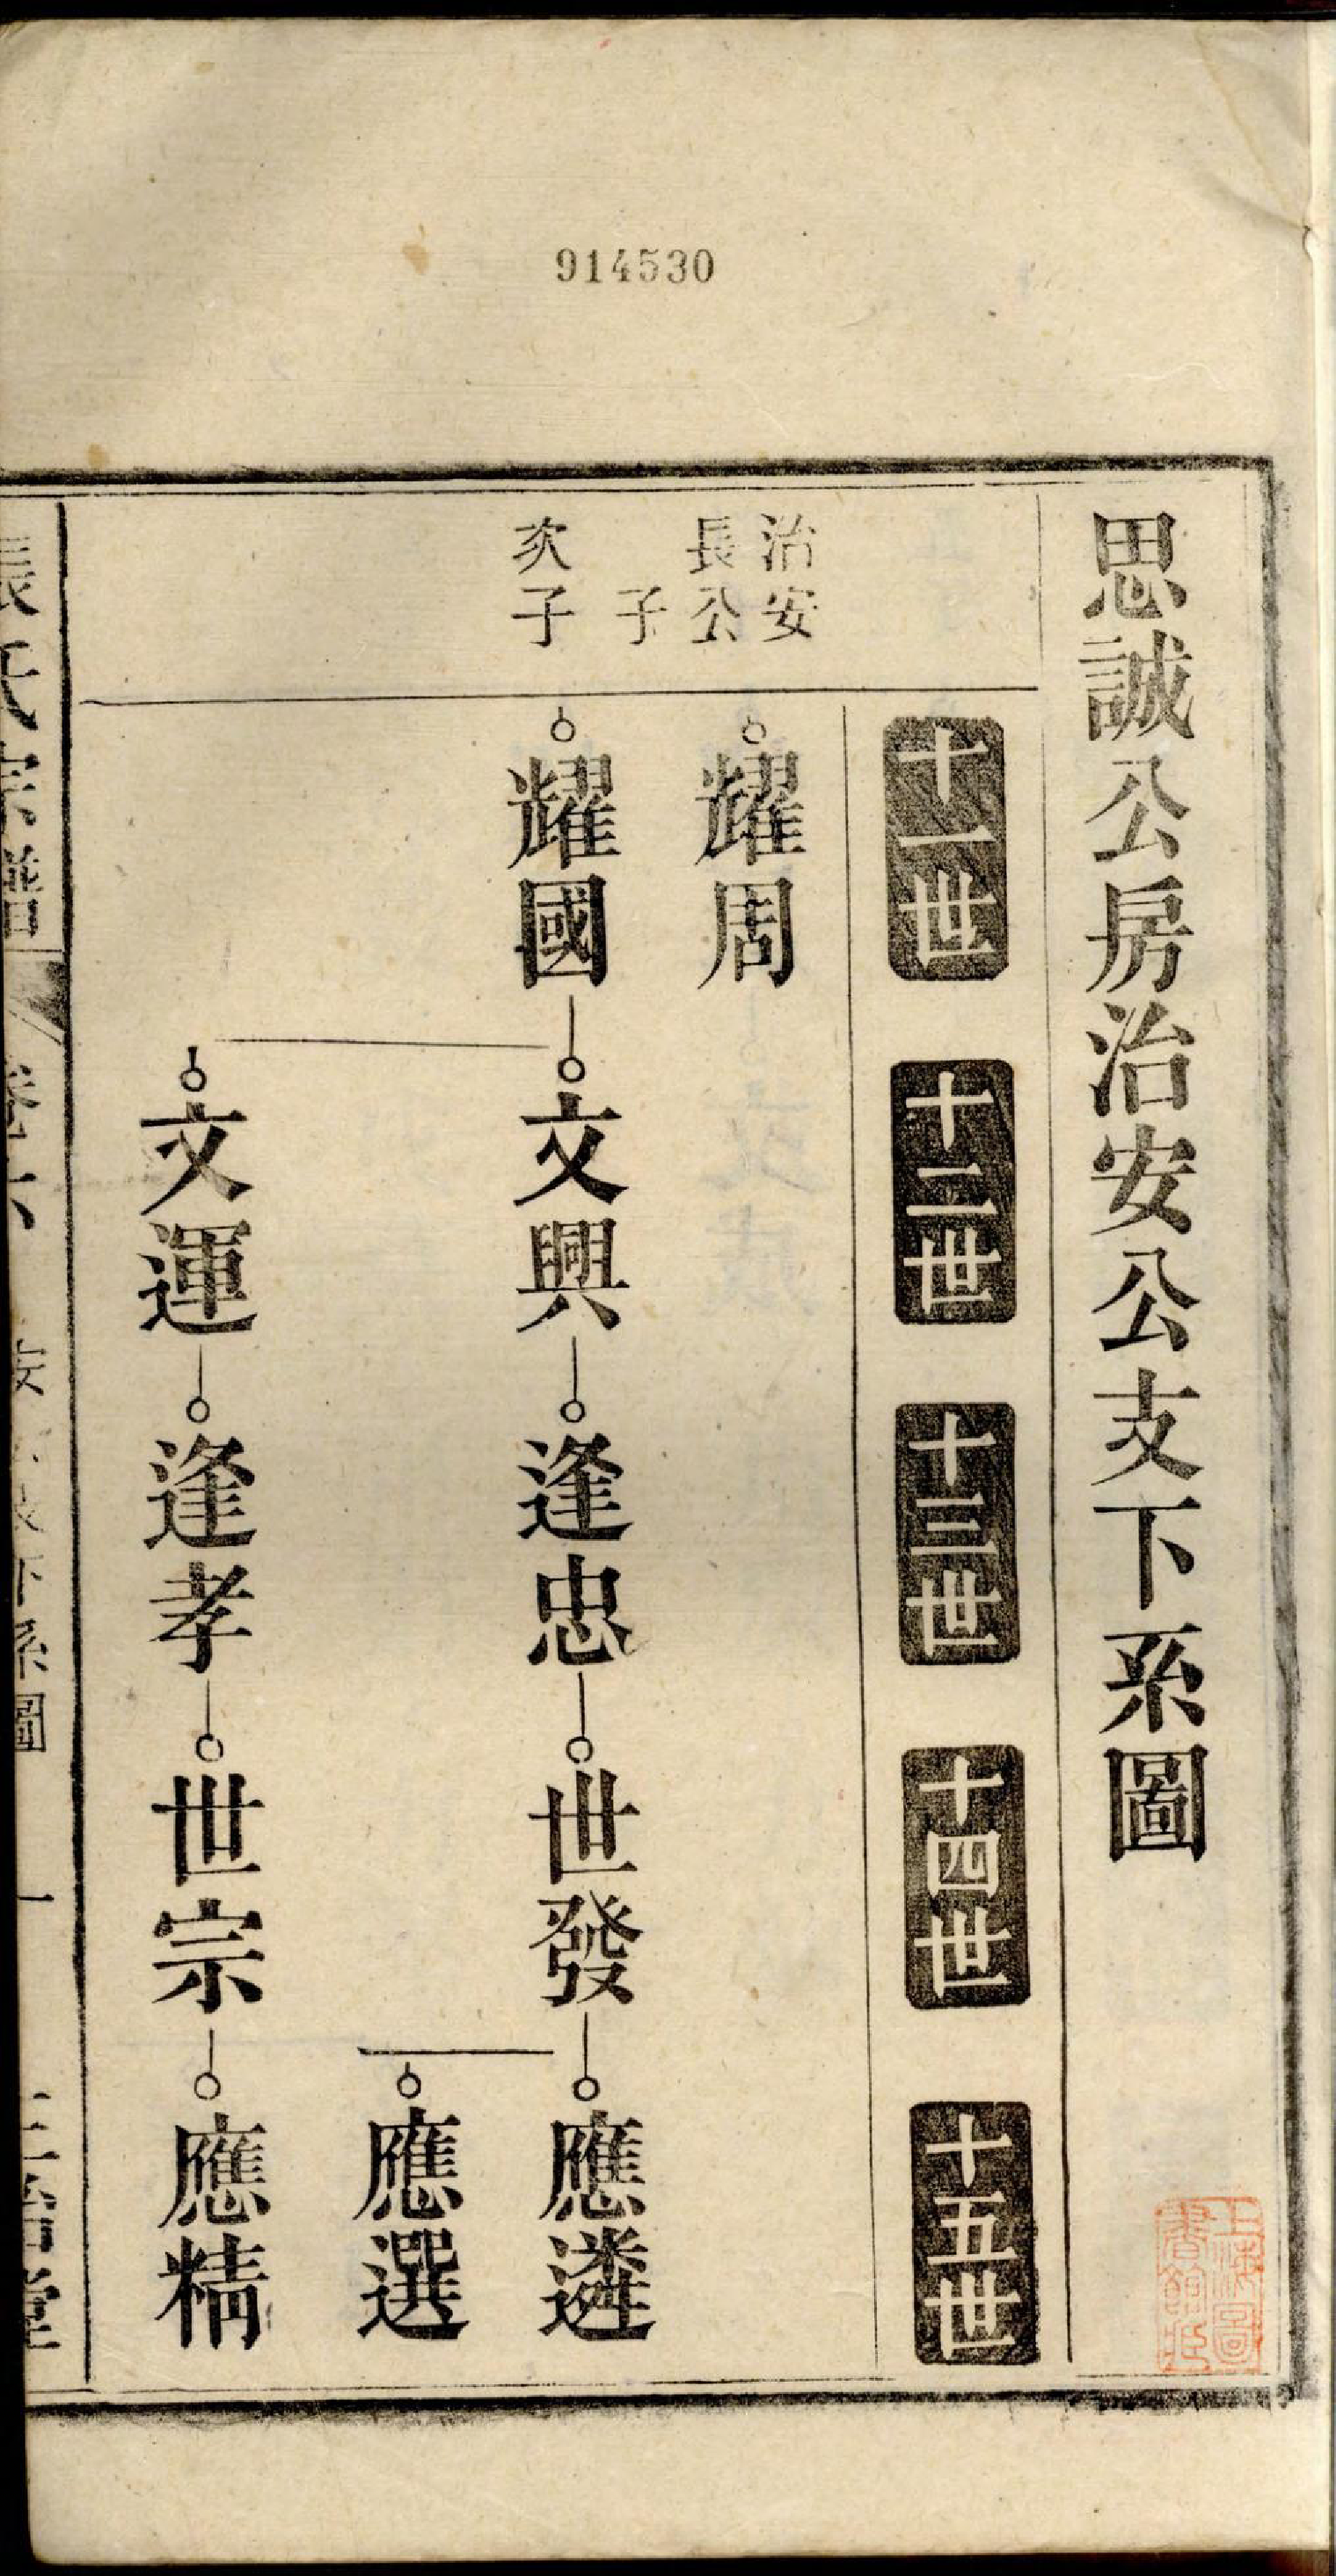 914530
思誠公房治安公支下系圖
十一世
十二世
十三世
十四世
十五世
治安
長公
子
耀周
次子
耀國
文興
逢忠
世發
應遴
應選
文運
逢孝
世宗
應精
張氏宗譜
卷六
下系圖
一
上海圖
書館臧